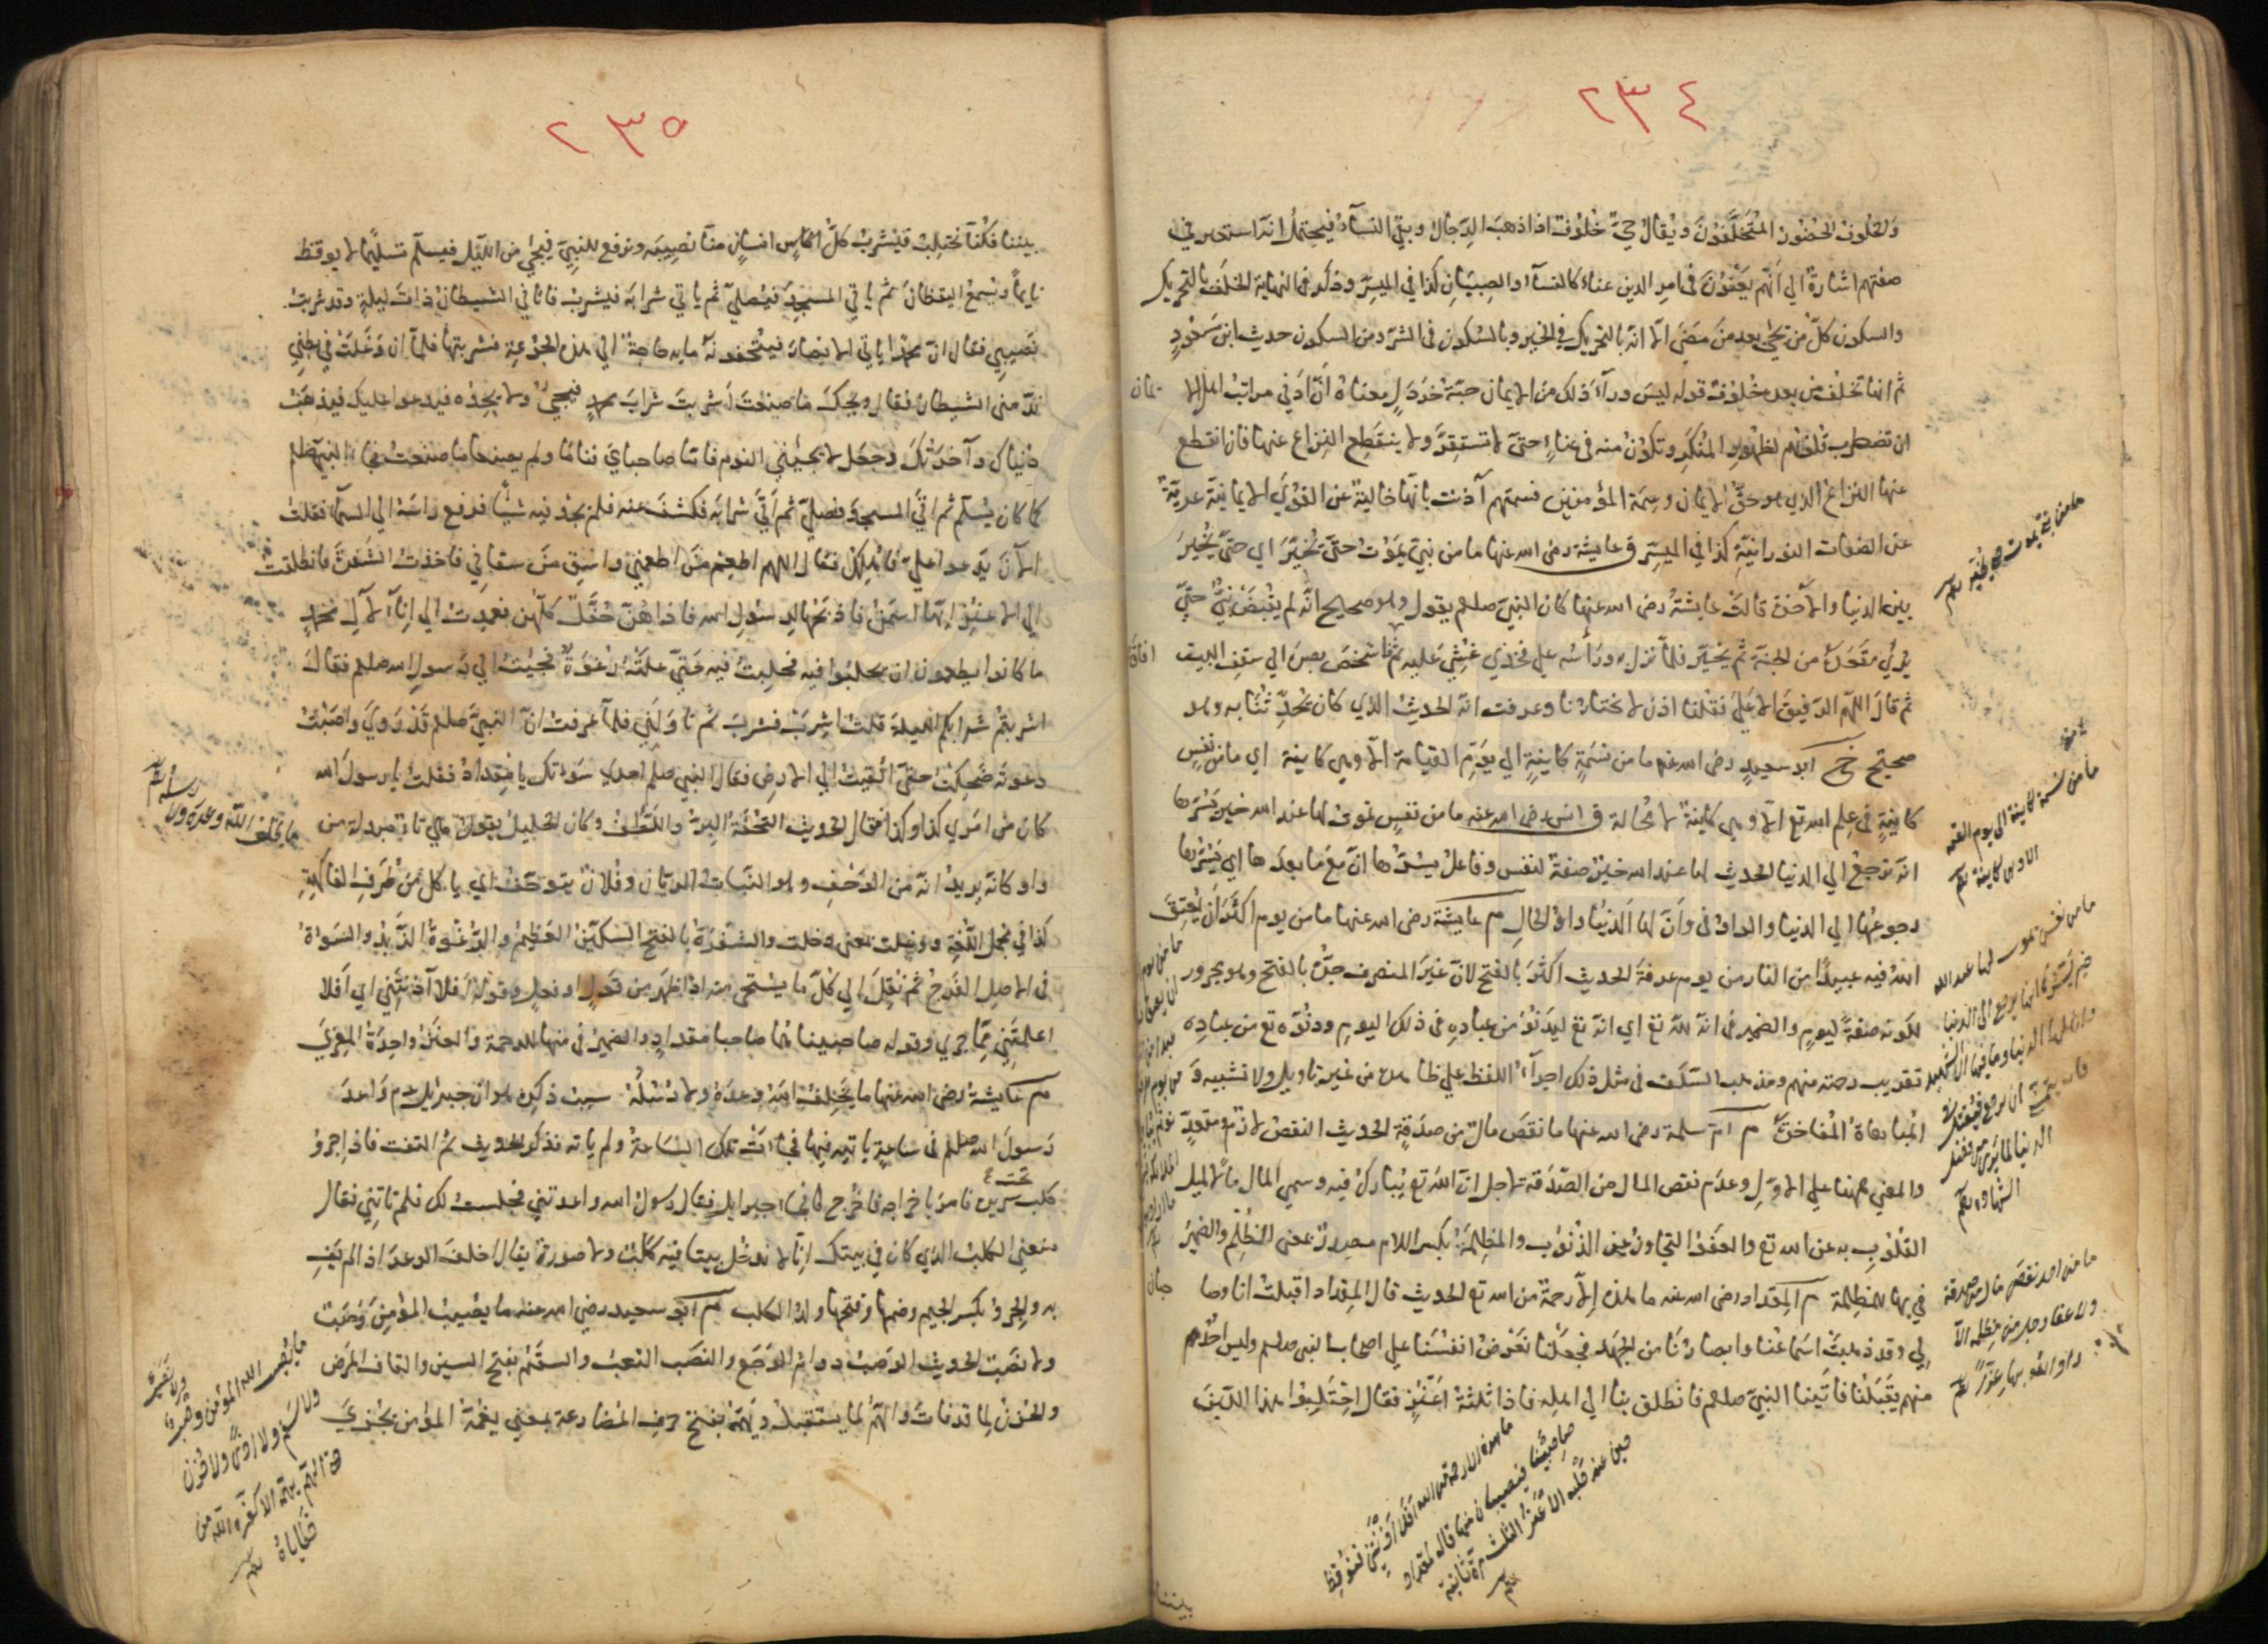 ٢٣٤
والخلوف الحضور المتخلفون ويقال حي خلوف اذا ذهب الرجال وبقي النساء فيحتمل انه استعير في
صفتهم اشارة الي انهم يعتون في امر الدين عناء كالنساء والصبيان كذا في الميسر وذكر في النهاية الخلف بالتحريك
والسكون كل من يجئ بعد من مضي الا انه بالتحريك في الخير وبالسكون في الشر ومن السكون حديث ابن مسعود
ثم انها تخلف من بعده خلوف قوله ليس وراء ذلك من الايمان حبة خردل معناه ان ادني مراتب اهل الا
يمان
ان تضطرب قلوبهم لظهور المنكر وتكون منه في عناء حتي لا تستقر ولا ينقطع النزاع عنها فان انقطع
عنها النزاع الذي هو حق الايمان وسمة المؤمنين فسمتهم آذنت بانها خالية عن القوي الايمانية عرية
عن الصفات النورانية كذا في الميسر ق عايشة رضي الله عنها ما من نبي يموت حتي يخير اي حتي يخير
بين الدنيا والآخرة قالت عايشة رضي الله عنها كان النبي صلعم يقول وهو صحيح انه لم يقبض نبي حتي
يري مقعده من الجنة ثم يخير فلما نزل به ورأسه علي فخذي غشي عليه ثم فاشخص بصره الي سقف البيت
افاق
ثم قال اللهم الرفيق الاعلي فقلنا اذن لا يختارنا وعرفت انه الحديث الذي كان يحدثنا به وهو
صحيح خ ابو سعيد رضي الله عنه ما من نسمة كاينة الي يوم القيامة الا وهي كاينة اي ما من نفس
كاينة في علم الله تع الا وهي كاينة لا محالة ق انس رضي الله عنه ما من نفس تموت لها عند الله خير يسرها
انه ترجع الي الدنيا الحديث لها عند الله خير صفة لنفس وفاعل يسرها ان مع ما بعدها اي يسرها
رجوعها الي الدنيا والواو في وان لها الدنيا واو الحال م عايشة رضي الله عنها ما من يوم اكثر ان يعتق
الله فيه عبيدا من النار من يوم عرفة الحديث اكثر بالفتح لان غير المنصرف جره بالفتح وهو مجرور
لكونه صفة ليوم والضمير في انه لله تع اي انه تع ليدنو من عباده في ذلك اليوم ودنوه تع من عباده
تقريب رحمته منهم ومذهب السلف في مثل ذلك اجراء اللفظ علي ظاهره من غير تاويل ولا تشبيه و
المباهاة المفاخرة م ام سلمة رضي الله عنها ما نقص مال من صدقة الحديث النقص لازم ومتعد
والمعني ههنا علي الاول وعدم نقص المال من الصدقة لاجل ان الله تع يبارك فيه وسمي المال مالا لميل
القلوب به عن الله تع والعفو التجاوز عن الذنوب والمظلمة بكسر اللام مصدر بمعني الظلم والضمير
في بها للمظلمة م المقداد رضي الله عنه ما هذه الا رحمة من الله تع الحديث قال المقداد اقبلت انا وصا
حبان
لي وقد ذهبت اسماعنا وابصارنا من الجهد فجعلنا نعرض انفسنا علي اصحاب النبي صلعم وليس احد
منهم يقبلنا فاتينا النبي صلعم فانطلق بنا الي اهله فاذا ثلثة اعنز فقال احتلبوا هذا اللبن
ما من نبي يموت حتي يخير
ما من نسمة كاينة الي يوم القيمة
الا وهي كاينة
ما من نفس تموت لها عند الله
خير يسرها انها ترجع الي الدنيا
وان لها الدنيا وما فيها الا الشهيد
فانه يتمني ان يرجع فيقتل في
الدنيا لما يري من فضل
الشهادة
ما من احد نقص مال من صدقة
ولا عفا رجل من مظلمة الا
زاده الله بها عزا
ما هذه الا رحمة من الله افلا اذنتني فنوقظ
صاحبينا فيصيبان منها قاله لمقداد
حين عنه قلبه الاعنز الثلث مرة ثانية
بيننا
٢٣٥
بيننا فكنا نحتلب فيشرب كل انسان منا نصيبه ونرفع للنبي فيجئ من الليل فيسلم تسليما لا يوقظ
نايما ويسمع اليقظان ثم ياتي المسجد فيصلي ثم ياتي شرابه فيشرب فاتاني الشيطان ذات ليلة وقد شربت
نصيبي فقال ان محمدا ياتي الانصار فيتحفونه ما به حاجة الي هذه الجرعة فشربتها فلما ان وغلت في بطني
ندمني الشيطان فقال ويحك ما صنعت اشربت شراب محمد فيجئ ولا يجده فيدعوا عليك فيذهب
دنياك وآخرتك وجعل لا يجيئني النوم فاما صاحباي فناما ولم يصنعا ما صنعت فجاء النبي صلعم
كما كان يسلم ثم اتي المسجد فصلي ثم اتي شرابه فكشف عنه فلم يجد فيه شيئا فرفع راسه الي السماء فقلت
الآن يدعوا علي فاهلك فقال اللهم اطعم من اطعمني واسق من سقاني فاخذت الشفرة فانطلقت
الي الاعنز ايها اسمن فاذبحها لرسول الله فاذا هن حفل كلهن فعمدت الي اناء لآل محمد
ما كانوا يطمعون ان يحلبوا فيه فحلبت فيه حتي علته رغوة فجيت الي رسول الله صلعم فقال
اشربتم شرابكم الليلة قلت اشرب فشرب ثم ناولني فلما عرفت ان النبي صلعم قد روي واصبت
دعوته ضحكت حتي القيت الي الارض فقال النبي صلعم احدي سوءاتك يا مقداد فقلت يا رسول الله
كان من امري كذا وكذا فقال الحديث التحفة البر واللطف وكان الخليل يقول هي تاء مبدلة من
واو كانه يريد انه من الوحف وهو النبات الريان وفلان يتوحف اي ياكل من طرف الفاكهة
كذا في مجمل اللغة ووغلت بمعني دخلت والشفرة بالفتح السكين العظيم والرغوة الزبد والسوءة
في الاصل الفرج ثم نقل الي كل ما يستحي منه اذا ظهر من قول او فعل وقوله افلا آذنتني اي افلا
اعلمتني بما جري وقوله صاحبينا هما صاحبا مقداد والضمير في منها للرحمة والعنز واحدة المعزي
م عايشة رضي الله عنها ما يخلف الله وعده ولا رسله سبب ذكره هو ان جبريل عم واعد
رسول الله صلعم في ساعة ياتيه فيها فجاءت تلك الساعة ولم ياته فذكر الحديث ثم التفت فاذا جرو
كلب تحت سرير فامر باخراجه فاخرج فجاء جبرايل فقال رسول الله واعدتني فجلست لك فلم تاتني فقال
منعني الكلب الذي كان في بيتك انا لا ندخل بيتا فيه كلب ولا صورة يقال اخلف الوعد اذا لم يف
به والجرو بكسر الجيم وضمها وفتحها ولد الكلب م ابو سعيد رضي الله عنه ما يصيب المؤمن وصب
ولا نصب الحديث الوصب دوام الوجع والنصب التعب والسقم بفتح السين والقاف المرض
والحزن لما قد فات والهم لما يستقبل ويهم بفتح حرف المضارعة بمعني يغمه المؤمن يجزي
ما يخلف الله وعده ولا
رسله
ما يصيب المؤمن وصب
ولا نصب
ولا سقم ولا اذي ولا حزن
حتي الهم يهمه الا كفر الله من
خطاياه